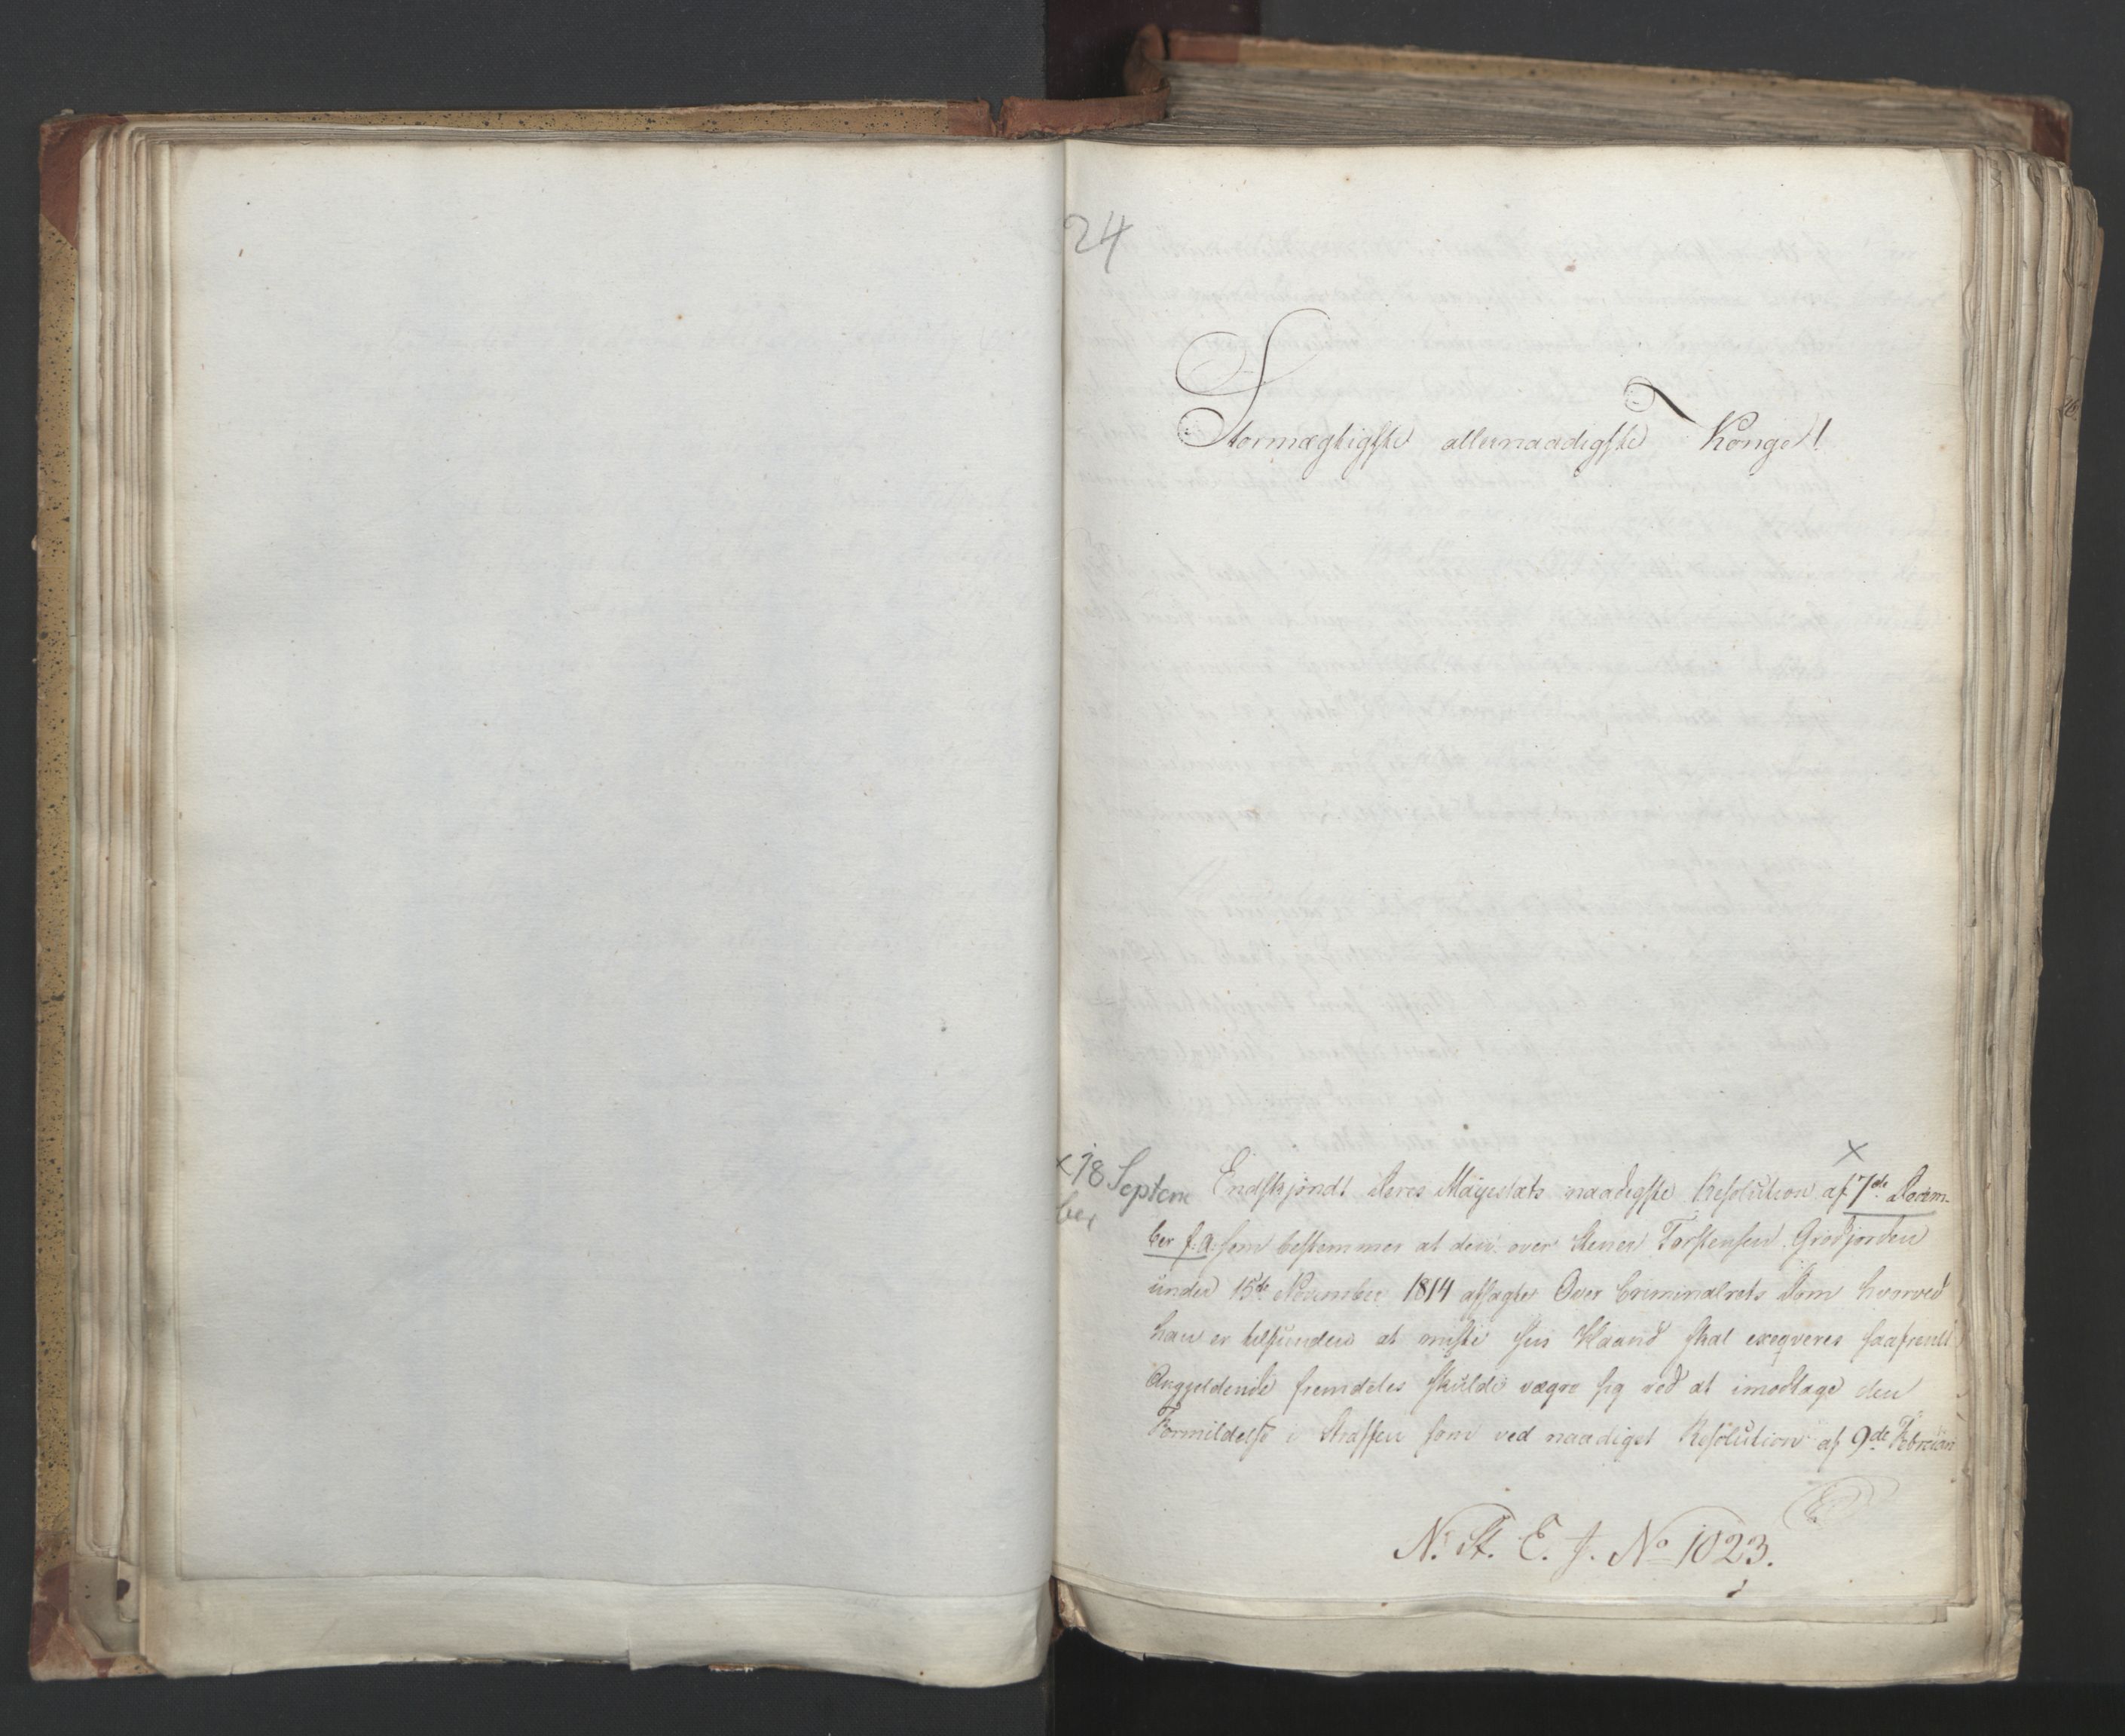 24
Stormægtigste allernaadigste Konge!
x 18 Septem
ber
x
Endskjøndt Deres Mayestæts naadigste Resolution af 7de Decem-
ber f: a: som bestemmer at den over Stener Torstensen Grødjorden
under 15de November 1814 afsagte Over Criminalrets Dom hvorved
han er tilfunden at miste sin Haand skal exeqveres saafremt
Angjeldende fremdeles skulde vægre sig ved at imodtage den
Formildelse i Straffen som ved naadigst Resolution af 9de Februar
N. St. E. J. No 1023.